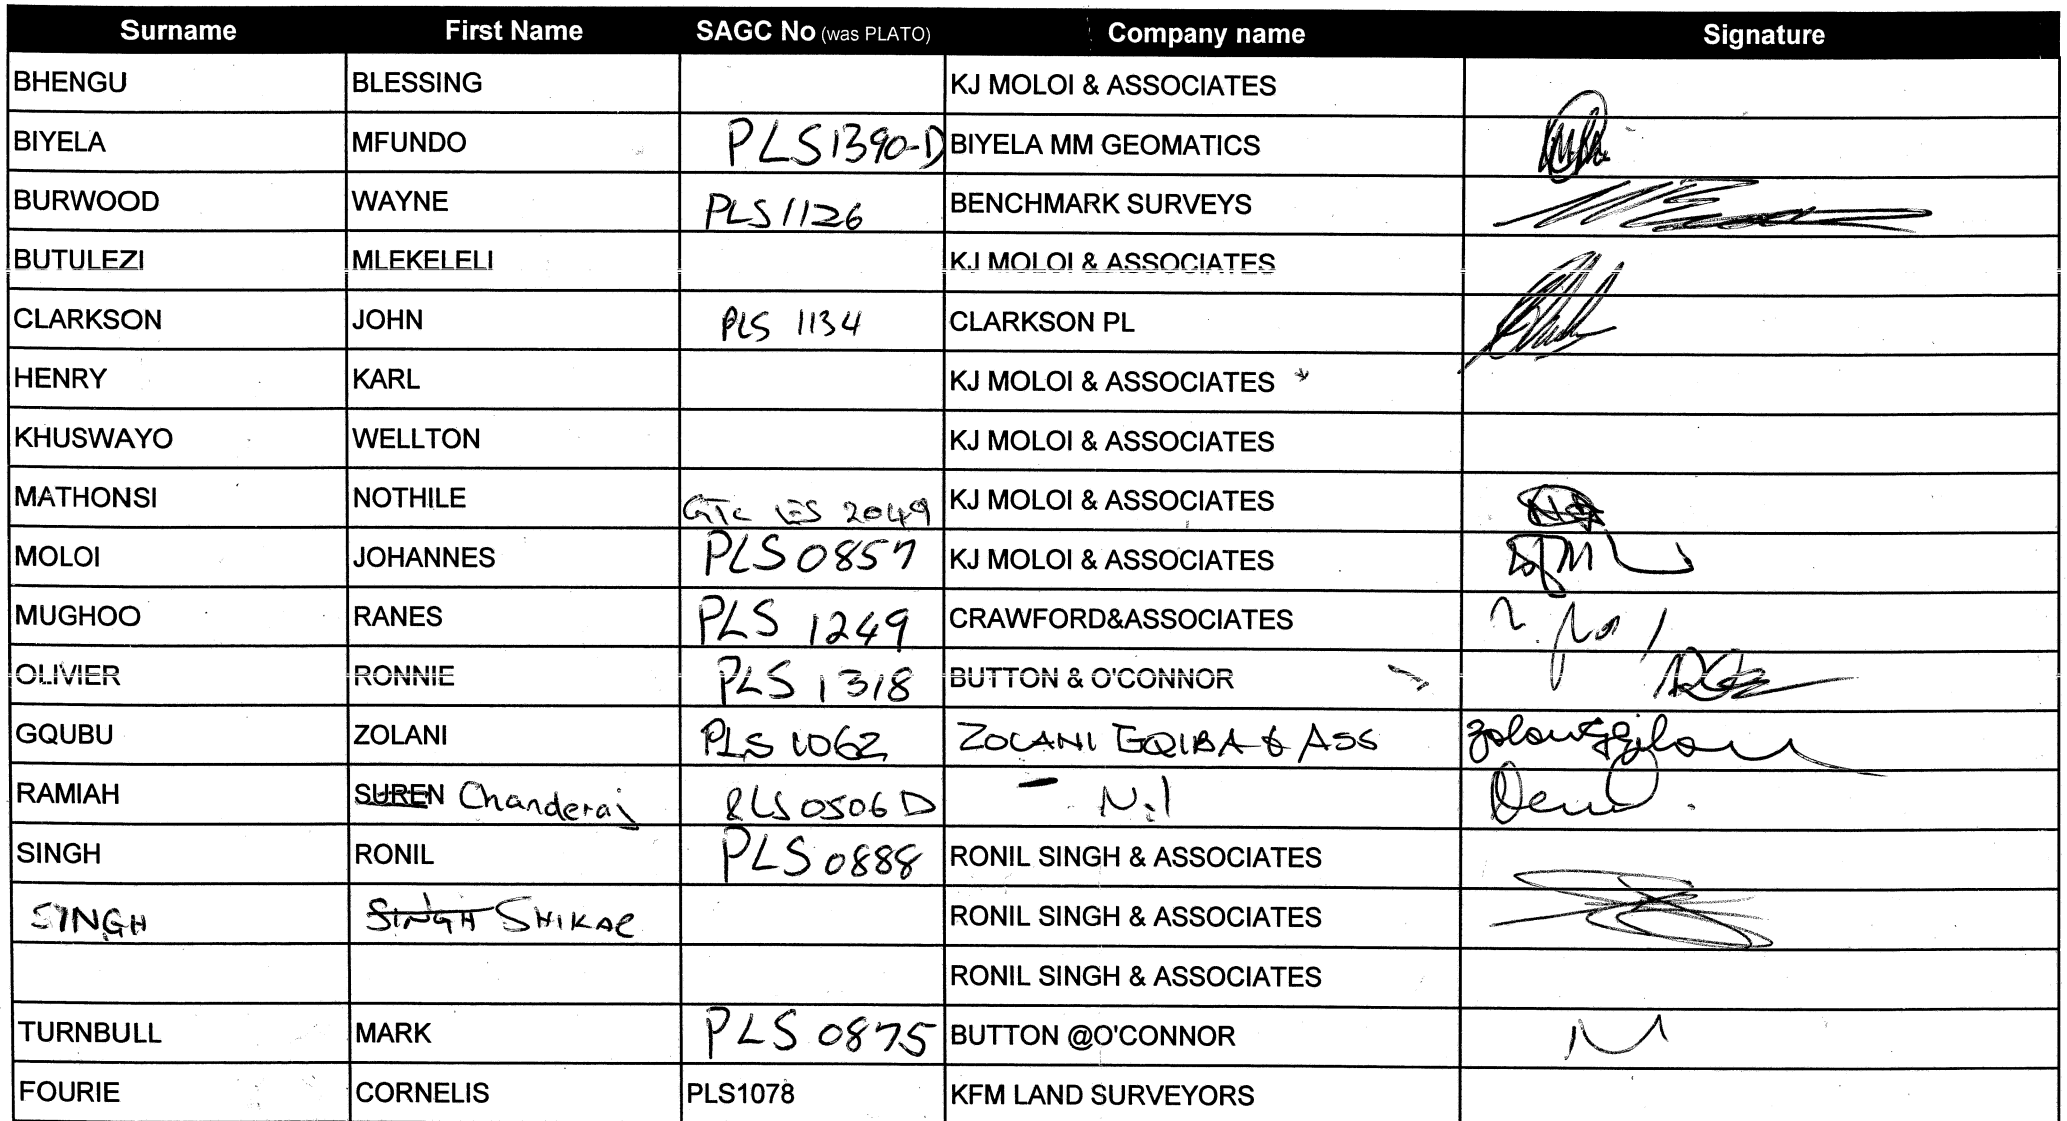 Surname First Name SAGC No (was PLATO) Company name Signature
BHENGU BLESSING KJ MOLOI & ASSOCIATES
BIYELA MFUNDO PLS1390-D BIYELA MM GEOMATICS
BURWOOD WAYNE PLS1126 BENCHMARK SURVEYS
BUTULEZI MLEKELELI KJ MOLOI & ASSOCIATES
CLARKSON JOHN PLS 1134 CLARKSON PL
HENRY KARL KJ MOLOI & ASSOCIATES
KHUSWAYO WELLTON KJ MOLOI & ASSOCIATES
MATHONSI NOTHILE GTc LS 2049 KJ MOLOI & ASSOCIATES
MOLOI JOHANNES PLS 0857 KJ MOLOI & ASSOCIATES
MUGHOO RANES PLS 1249 CRAWFORD&ASSOCIATES
OLIVIER RONNIE PLS 1318 BUTTON & O'CONNOR
GQUBU ZOLANI PLS 1062 ZOLANI GQIBA & ASS
RAMIAH SUREN Chanderaj PLS0506D Nil
SINGH RONIL PLS 0888 RONIL SINGH & ASSOCIATES
SINGH SINGH SHIKAR RONIL SINGH & ASSOCIATES
RONIL SINGH & ASSOCIATES
TURNBULL MARK PLS 0875 BUTTON @O'CONNOR
FOURIE CORNELIS PLS1078 KFM LAND SURVEYORS